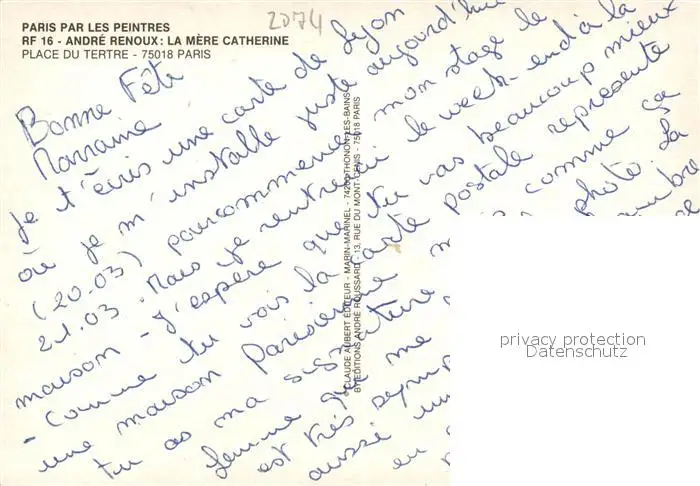 PARIS PAR LES PEINTRES
RF 16 - ANDRÉ RENOUX : LA MÈRE CATHERINE
PLACE DU TERTRE - 75018 PARIS
2074
Bonne Fête
Marraine
Je t'écris une carte de Lyon
où je m'installe juste aujourd'hui
(20.03) pour commencer mon stage le
21.03. Mais je rentrerai le week-end à la
maison - J'espère que tu vas beaucoup mieux
- Comme tu vois la carte postale représente
une maison Parisienne mais comme ça
tu as ma signature photo. La
femme qui me chambre
est très symp
aussi un
en
© CLAUDE AUBERT EDITEUR - MARIN-MARINEL - 74200 THONON-LES-BAINS
BY EDITIONS ANDRÉ ROUSSARD - 13, RUE DU MONT-CENIS - 75018 PARIS
privacy protection
Datenschutz